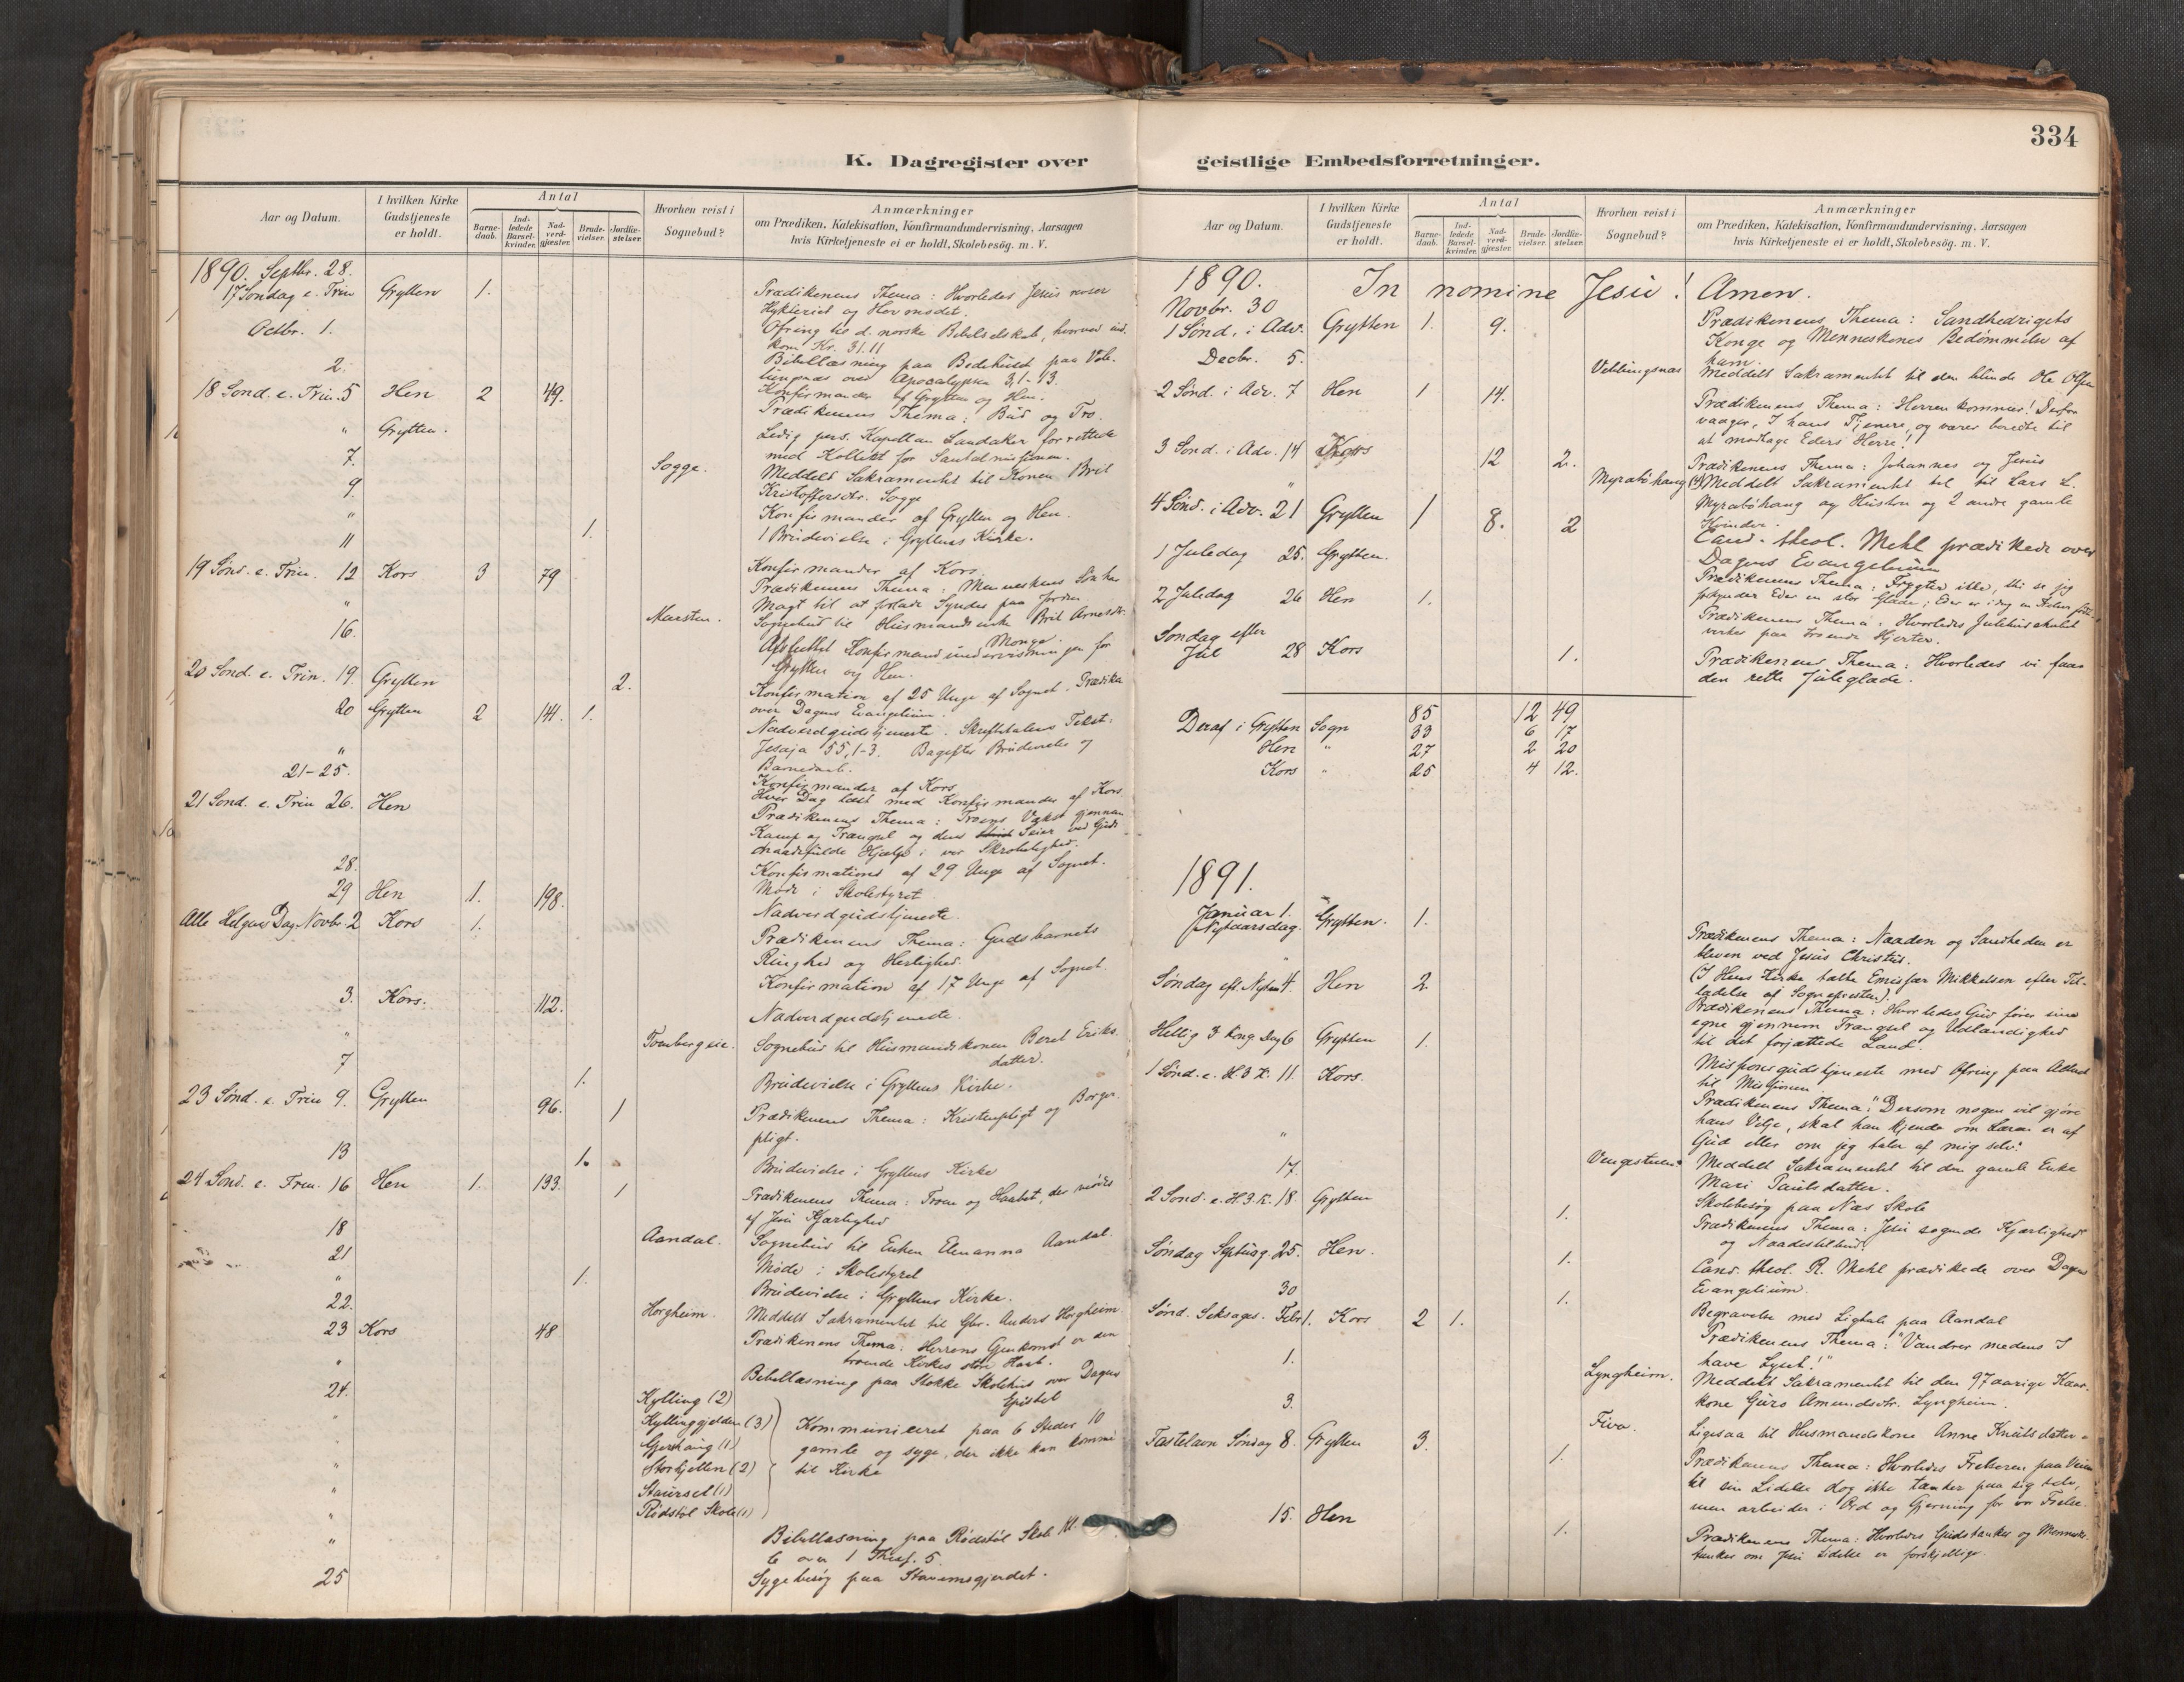 334
K. Dagregister over geistlige Embedsforretninger.
Aar og Datum.
I hvilken Kirke Gudstjeneste er holdt.
Antal
Barne-daab.
Ind-ledede Barsel-kvinder.
Nad-verd-gjæster.
Brude-vielser.
Jordfæ-stelser.
Hvorhen reist i Sognebud?
Anmærkninger
om Prædiken, Katekisation, Konfirmandundervisning, Aarsagen
hvis Kirketjeneste ei er holdt, Skolebesög. m. V.
1890. Septbr. 28.
17 Søndag e. Trin Grytten 1. Prædikenens Thema: Hvorledes Jesus
Hykleriet og Hovmodet.
Octbr. 1. Ofring til d. norske Bibelselskab, hvorved ind-
kom Kr. 31.11
2. Bibellæsning paa Bedehuset paa Veb-
lungsnæs over Apocalypsen 3,1-13.
Konfirmander af Grytten og Hen.
18 Sond. e. Trin. 5 Hen 2 49. Prædikenens Thema: Bud og Tro.
" Grytten. Ledig pers. Kapellan Sandaker forrettede
med Kollekt for Santalmissionen.
7. Sogge. Meddelt Sakramentet til Konen Brit
Kristoffersdtr. Sogge
9. Konfirmander af Grytten og Hen.
" 1. 1 Brudevielse i Gryttens Kirke.
11 Konfirmander af Kors.
19 Sønd. e. Trin. 12 Kors 3 79 Prædikenens Thema: Menneskens Søn har
Magt til at forlade Synder paa Jorden
" Marsten. Sognebud til Husmandsenke Brit Arnesdtr.
Monge.
16. Afsluttet Konfirmandundervisningen for
Grytten og Hen.
20 Sond. e. Trin. 19. Grytten 2. Konfirmation af 25 Unge af Sognet. Prædiken
over Dagens Evangelium.
20 Grytten 2 141. 1. Nadverdgudstjeneste. Skriftetalens Tekst:
Jesaja 55,1-3. Bagefter Brudevielse og
Barnedaab.
" Konfirmander af Kors
21-25. Hver Dag læst med Konfirmander af Kors.
21 Sond. e. Trin 26. Hen Prædikenens Thema: Troens Vækst gjennem
Kamp og Trængsel og dens Seier ved Guds
naadefulde Hjælp i vor Skrøbelighed.
Konfirmations af 29 Unge af Sognet.
28. Møde i Skolestyret
29 Hen 1. 198. Nadverdgudstjeneste.
Alle Helgens Dag. Novbr. 2 Kors 1. Prædikenens Thema: Gudsbarnets
Ringhed og Herlighed.
Konfirmation af 17 Unge af Sognet.
3. Kors. 112. Nadverdgudstjeneste.
" Sognebud til Husmandskonen Beret Eriks-
datter.
7 1. Brudevielse i Gryttens Kirke.
23 Sønd. e. Trin 9. Grytten 96. 1 Prædikenens Thema: Kristenpligt og Borger-
pligt.
13 1. Brudevielse i Gryttens Kirke
24 Sond. e. Tren. 16 Hen 1. 133. 1 Prædikenens Thema: Troen og Haabet, der mødes
af Jesu Kjærlighed
18 Aandal. Sognebud til Enken Elenanna Aandal.
21 Møde i Skolestyret
" 1. Brudevielse i Gryttens Kirke.
22. Horgheim. Meddelt Sakramentet til Gbr. Anders Horgheim
23 Kors 48 Prædikenens Thema: Herrens Gjenkomst er den
troende Kirkes store Haab.
" Bibellæsning paa Stokke Skolehus over Dagens
Epistel
24. Kylling (2)
" (3) Kommuniceret paa 6 Steder 10
(1) gamle og syge, der ikke kan komme
" (2) til Kirke
" (1)
" Rødstøl Skole (1)
" Bibellæsning paa Rødstøl Skole Kl.
6 over 1 Thess. 5.
25 Sygebesøg paa Stavemsgjerdet.
1890. In nomine Jesu! Amen.
Novbr. 30
1 Sønd. i Adv. Grytten 1. 9. Prædikenens Thema: Sandhedrigets
Konge og Menneskenes Bedømmelse af
ham.
Decbr. 5. Veblungsnæs Meddelt Sakramentet til den blinde Ole Olsen
2 Sønd. i Adv. 7 Hen 1 14. Prædikenens Thema: Herren kommer! Derfor
vaager, I hans Tjenere, og værer beredte til
at modtage Eders Herre!
3 Sond. i Adv. 14 Kors 12 2. Prædikenens Thema: Johannes og Jesus
" Myrabøhaug (4) Meddelt Sakramentet til Lars L.
Myrabøhaug og Hustru og 2 andre gamle
Kvinder.
4 Sønd. i Adv. 21 Grytten 1 8. 2 Cand. theol. Mehl prædikede over
Dagens Evangelium
1 Juledag 25. Grytten. Prædikenens Thema: Frygter ikke, thi se jeg
forkynder Eder en stor Glæde; Eder er i dag en Frelser født.
2 Juledag 26 Hen 1. Prædikenens Thema: Hvorledes Julebudskabet
virker paa troende Hjerter.
Sondag efter
Jul 28 Kors 1. Prædikenens Thema: Hvorledes vi faar
den rette Juleglæde.
85 12 49
Deraf i Grytten Sogn 33 6 17
Hen " 27 2 20
Kors " 25 4 12.
1891.
Januar 1.
(Nytaarsdag. Grytten. 1. Prædikenens Thema: Naaden og Sandheden er
bleven ved Jesus Christus.
" (I Hens Kirke talte Emissær Mikkelsen efter Til-
ladelse af Sognepresten).
Søndag eft. Nytaar 4. Hen 2 Prædikenens Thema: Hvorledes Gud fører sine
egne gjennem Trængsel og Udlændighed
til det forjættede Land.
Hellig 3 Kong. Dag 6 Grytten 1. Missionsgudstjeneste med Ofring paa Alteret
til Missionen.
1 Sønd. e. H. 3 K. 11. Kors. Prædikenens Thema: "Dersom nogen vil gjøre
hans Vilje, skal han kjende om Læren er af
Gud eller om jeg taler af mig selv."
" Meddelt Sakramentet til den gamle Enke
Mari Paulsdatter.
17. Skolebesøg paa Næs Skole
2 Sond. e. H. 3. K. 18. Grytten 1. Prædikenens Thema: Jesu søgende Kjærlighed
og Naadestilbud.
Søndag Septuag. 25. Hen. 1. Cand. theol. R. Mehl prædikede over Dagens
Evangelium.
30 1. Begravelse med Ligtale paa Aandal
Sønd. Seksages. Febr. 1. Kors 2 1. Prædikenens Thema: "Vandrer medens I
have Lyset!"
1. Lyngheim. Meddelt Sakramentet til den 97 aarige Kaar-
kone Guro Amundsdtr. Lyngheim.
3. Fiva. Ligesaa til Husmandskone Anne Knutsdatter.
Fastelavn Søndag 8. Grytten 3. 1. Prædikenens Thema: Hvorledes Frelseren paa Veien
til sin Lidelse dog ikke tænker paa sig selv,
men arbeider i Ord og Gjerning for vor Frelse.
15. Hen 1. Prædikenens Thema: Hvorledes Gudstanker og Menneske-
tanker om Jesu Lidelse er forskjellige.